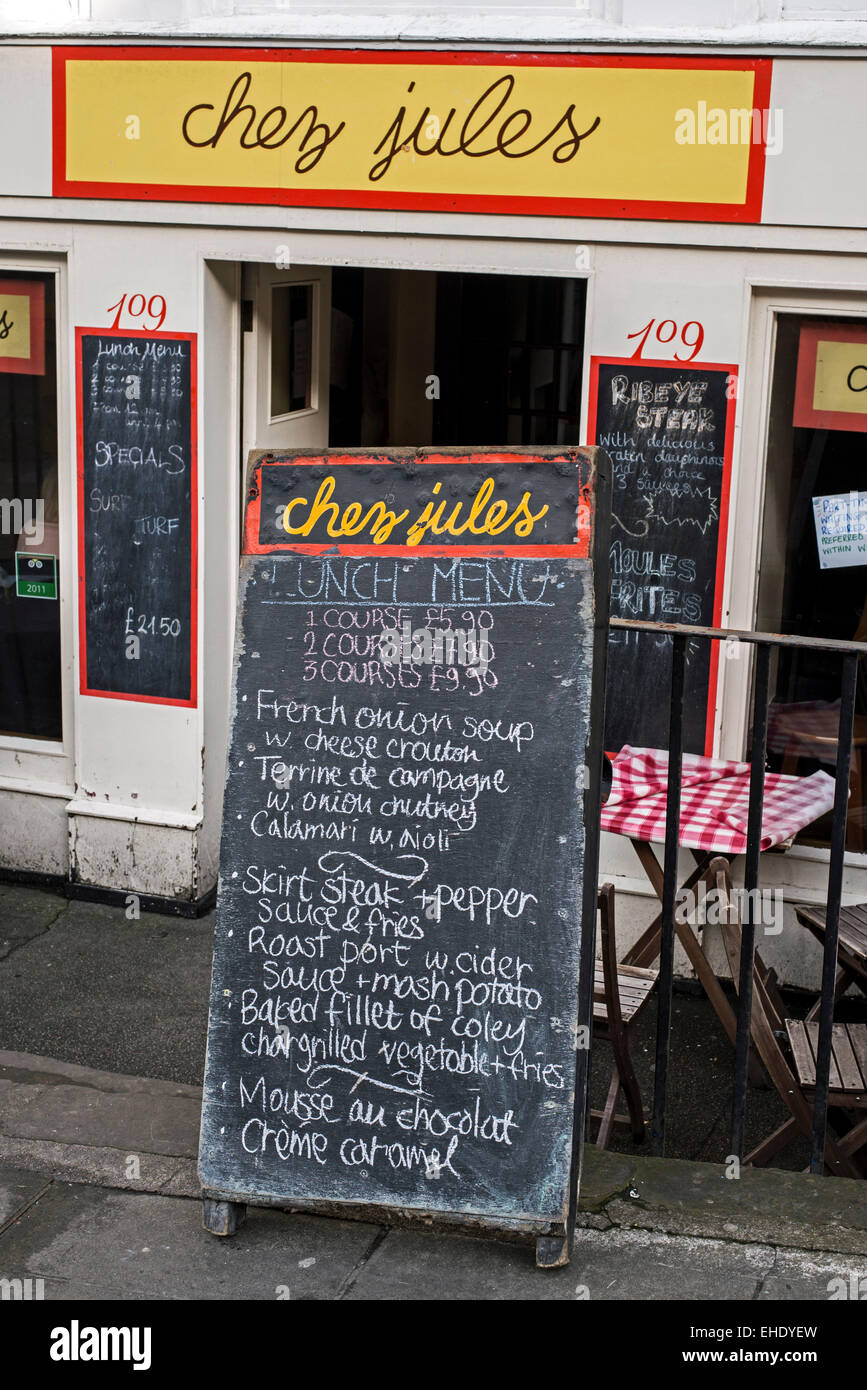 chez jules
109
Lunch Menu
SPECIALS
SURF
TURF
£21.50
2011
109
RIBEYE
STEAK
with delicious
and a choice
3 sauces
MOULES
FRITES
chez jules
LUNCH MENU
1 COURSE £5.90
2 COURSES £7.90
3 COURSES £9.90
· French onion soup
w. cheese crouton
· Terrine de campagne
w. onion chutney
· Calamari w. Aioli
· Skirt steak + pepper
sauce & fries
· Roast pork w. cider
sauce + mash potato
· Baked fillet of coley
chargrilled vegetable + fries
· Mousse au chocolat
· Crème caramel
alamy stock photo
EHDYEW
www.alamy.com